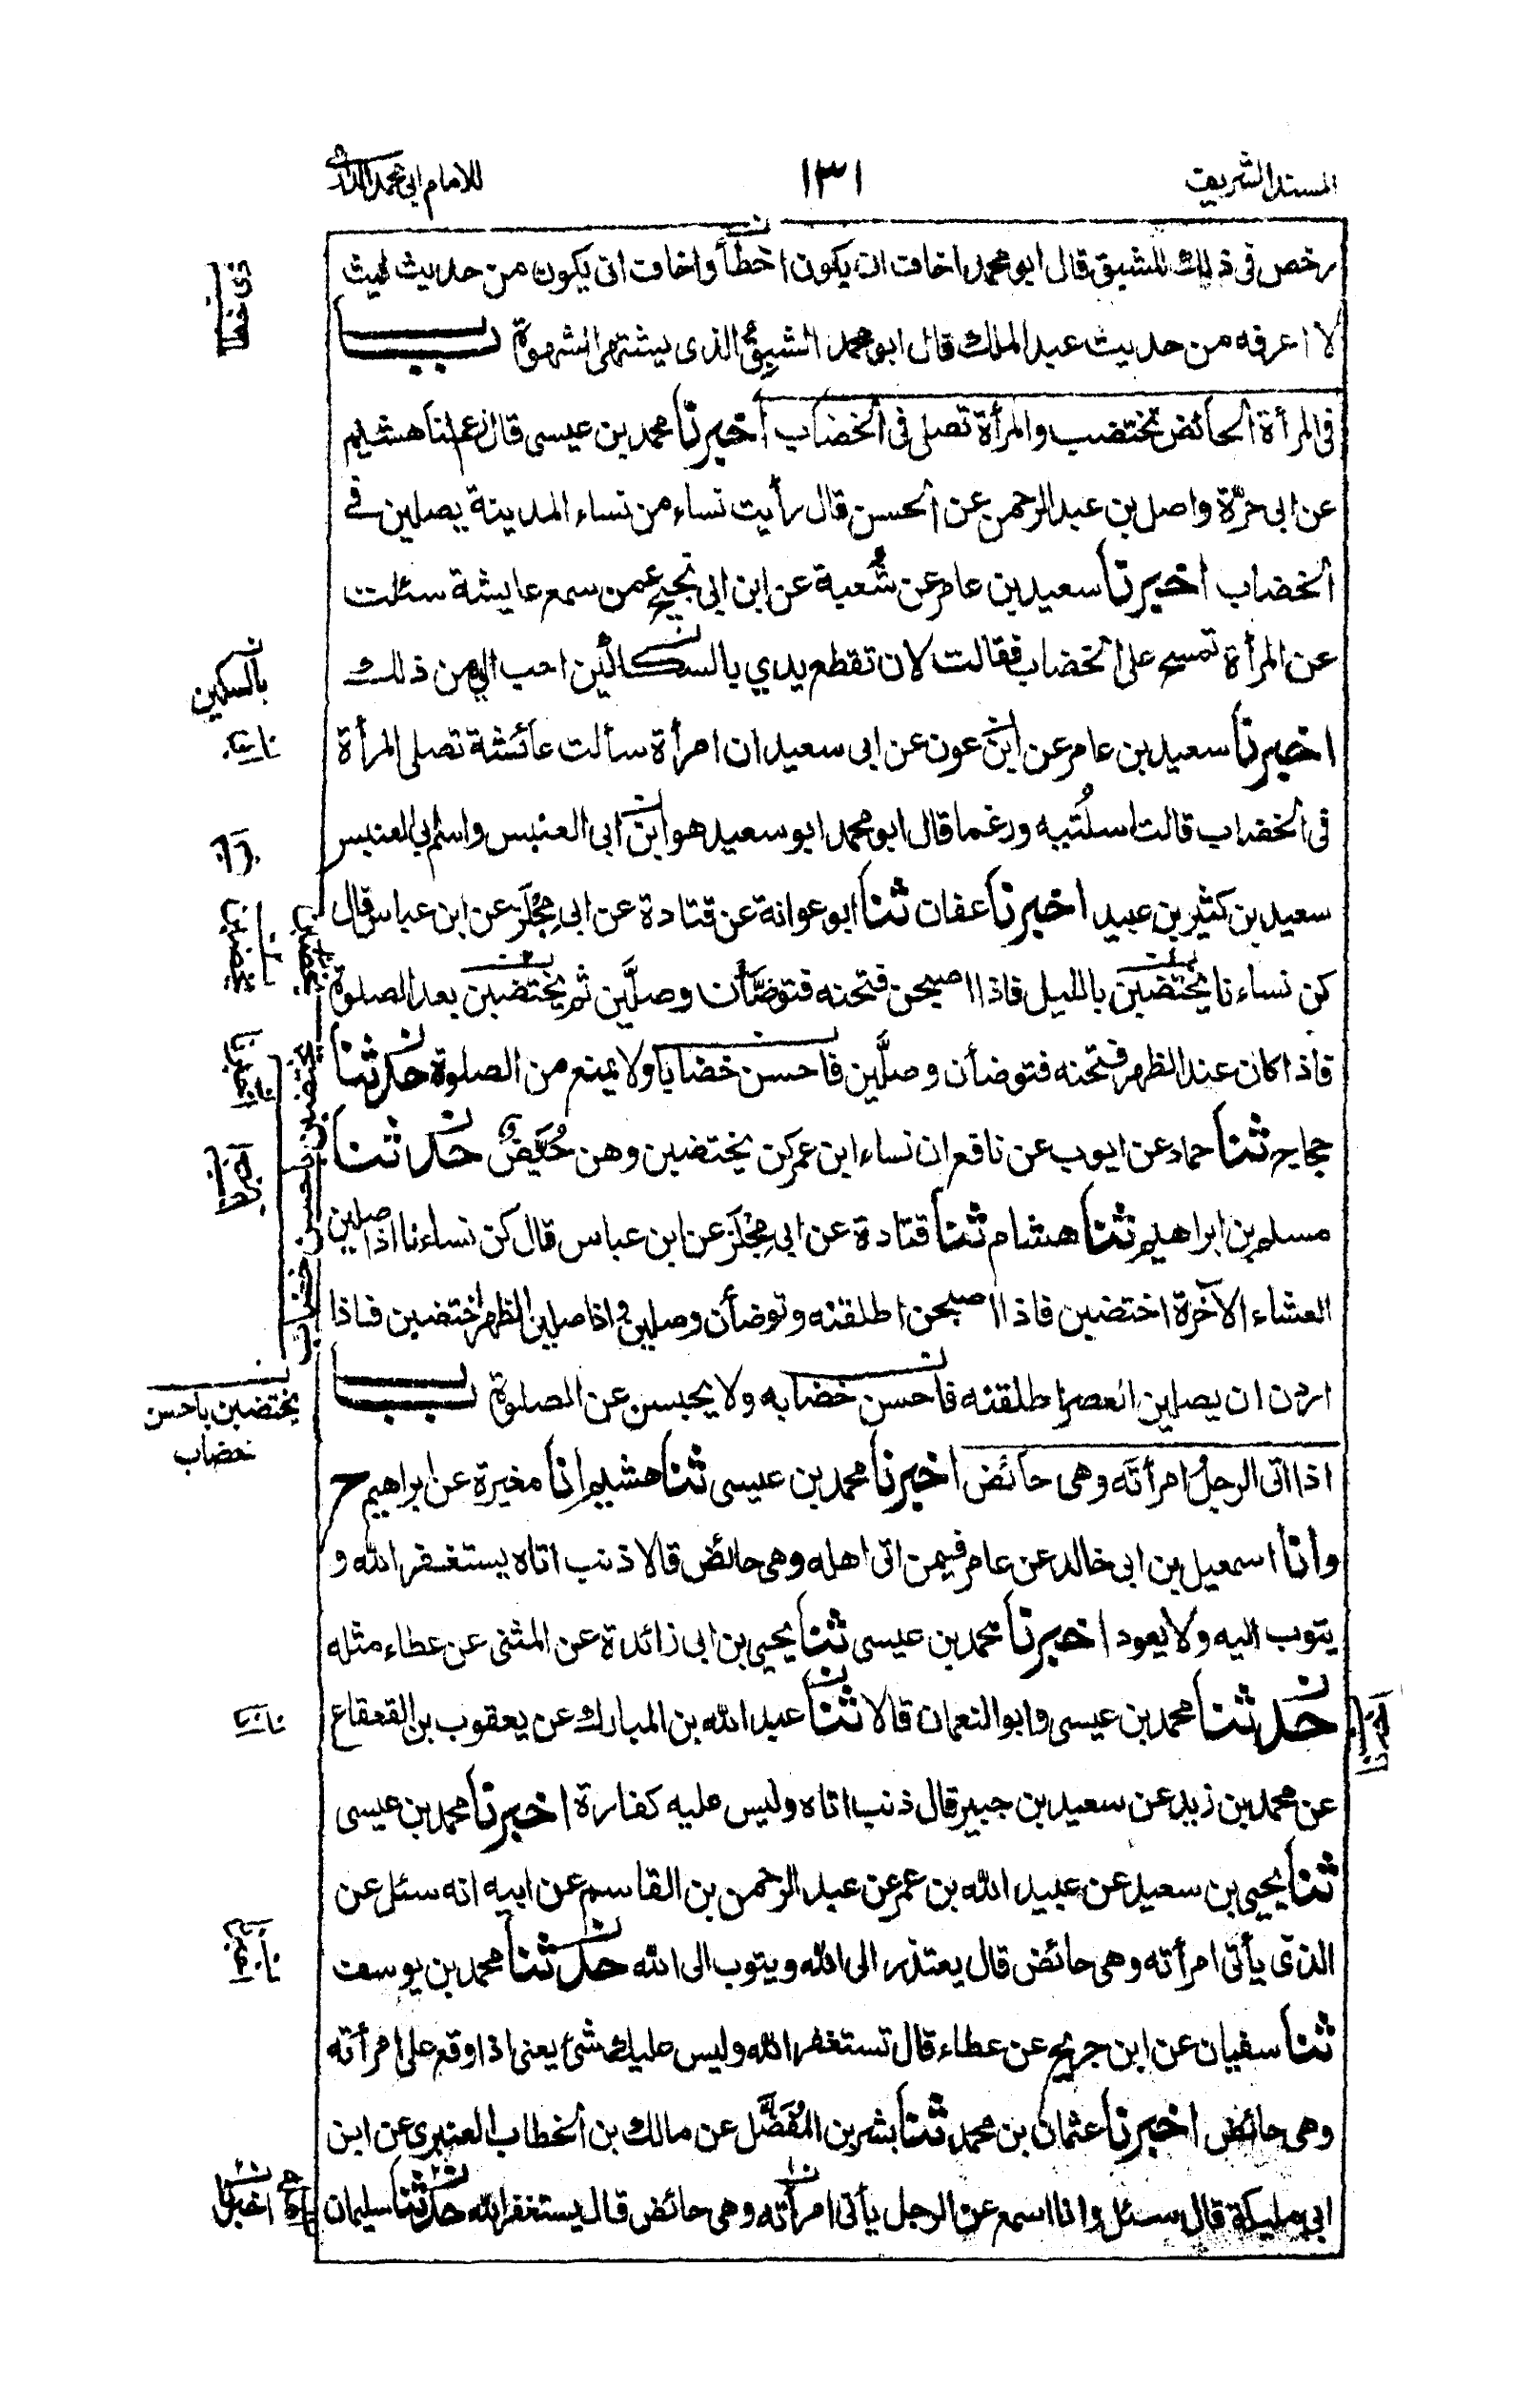 المسند الشريف
١٣١
للامام ابي محمد الدارمي
رخص فى ذلك للشبق قال ابو محمد اخاف ان يكون اخطأ واخاف ان يكون من حديث ليث
لا اعرفه من حديث عبد الملك قال ابو محمد الشبق الذى يشتهى الشهوة باب
فى المرأة الحائض تختضب والمرأة تصلى فى الخضاب اخبرنا محمد بن عيسى قال زعم لنا هشيم
عن ابى حرّة واصل بن عبد الرحمن عن الحسن قال رأيت نساء من نساء المدينة يصلين فى
الخضاب اخبرنا سعيد بن عامر عن شُعبة عن ابن ابى نجيح عمن سمع عايشة سئلت
عن المرأة تمسح على الخضاب فقالت لان تقطع يدي بالسكاكين احب الي من ذلك
بالسكين
اخبرنا سعيد بن عامر عن ابن عون عن ابى سعيد ان امرأة سألت عائشة تصلى المرأة
فى الخضاب قالت اسلُتيه ورغما قال ابو محمد ابو سعيد هو ابن ابى العنبس واسم ابى العنبس
سعيد بن كثير بن عبيد اخبرنا عفان ثنا ابو عوانة عن قتادة عن ابى مِجْلَز عن ابن عباس قال
كن نساءنا يختضبن بالليل فاذا اصبحن فتحنه فتوضّأن وصلَّين ثم يختضبن بعد الصلوة
فاذا كان عند الظهر فتحنه فتوضأن وصلَّين فاحسن خضابا ولا يمنع من الصلوة حدثنا
حجاج ثنا حماد عن ايوب عن نافع ان نساء ابن عمر كن يختضبن وهن حُيَّضٌ حدثنا
اخبرنا
مسلم بن ابراهيم ثنا هشام ثنا قتادة عن ابى مِجْلَز عن ابن عباس قال كن نساءنا اذا صلين
العشاء الآخرة اختضبن فاذا اصبحن اطلقنه وتوضأن وصلين واذا صلين الظهر اختضبن فاذا
اردن ان يصلين العصر اطلقنه فاحسن خضابه ولا يحبسن عن الصلوة باب
يختضبن باحسن
خضاب
اذا اتى الرجل امرأته وهى حائض اخبرنا محمد بن عيسى ثنا هشيم انا مغيرة عن ابراهيم ح
وانا اسمعيل بن ابى خالد عن عامر فيمن اتى اهله وهى حائض قالا ذنب اتاه يستغفر الله و
يتوب اليه ولا يعود اخبرنا محمد بن عيسى ثنا يحيى بن ابى زائدة عن المثنى عن عطاء مثله
حدثنا محمد بن عيسى وابو النعمان قالا ثنا عبد الله بن المبارك عن يعقوب بن القعقاع
اخبرنا
عن محمد بن زيد عن سعيد بن جبير قال ذنب اتاه وليس عليه كفارة اخبرنا محمد بن عيسى
ثنا يحيى بن سعيد عن عبيد الله بن عمر عن عبد الرحمن بن القاسم عن ابيه انه سئل عن
الذى يأتى امرأته وهى حائض قال يعتذر الى الله ويتوب الى الله حدثنا محمد بن يوسف
ثنا سفيان عن ابن جريج عن عطاء قال تستغفر الله وليس عليك شئ يعنى اذا وقع على امرأته
وهى حائض اخبرنا عثمان بن محمد ثنا بشر بن المُفَضَّل عن مالك بن الخطاب العنبرى عن ابن
ابى مليكة قال سئل وانا اسمع عن الرجل يأتى امرأته وهى حائض قال يستغفر الله حدثنا سليمان
اخبرنا